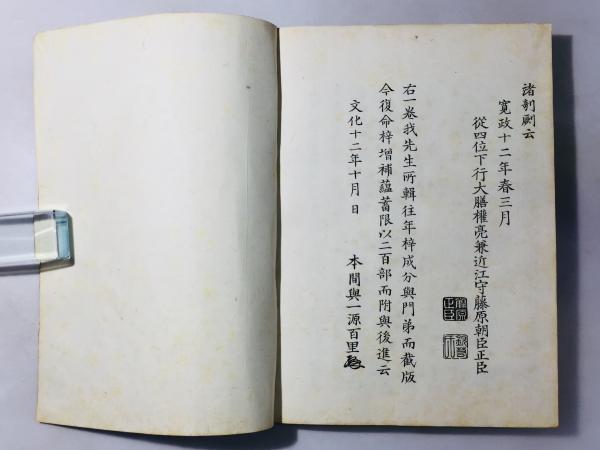 諸剞劂云
寛政十二年春三月
從四位下行大膳權亮兼近江守藤原朝臣正臣
右一卷我先生所輯往年梓成分與門弟而截版
今復命梓增補蘊蓄限以二百部而附與後進云
文化十二年十月日
本間與一源百里